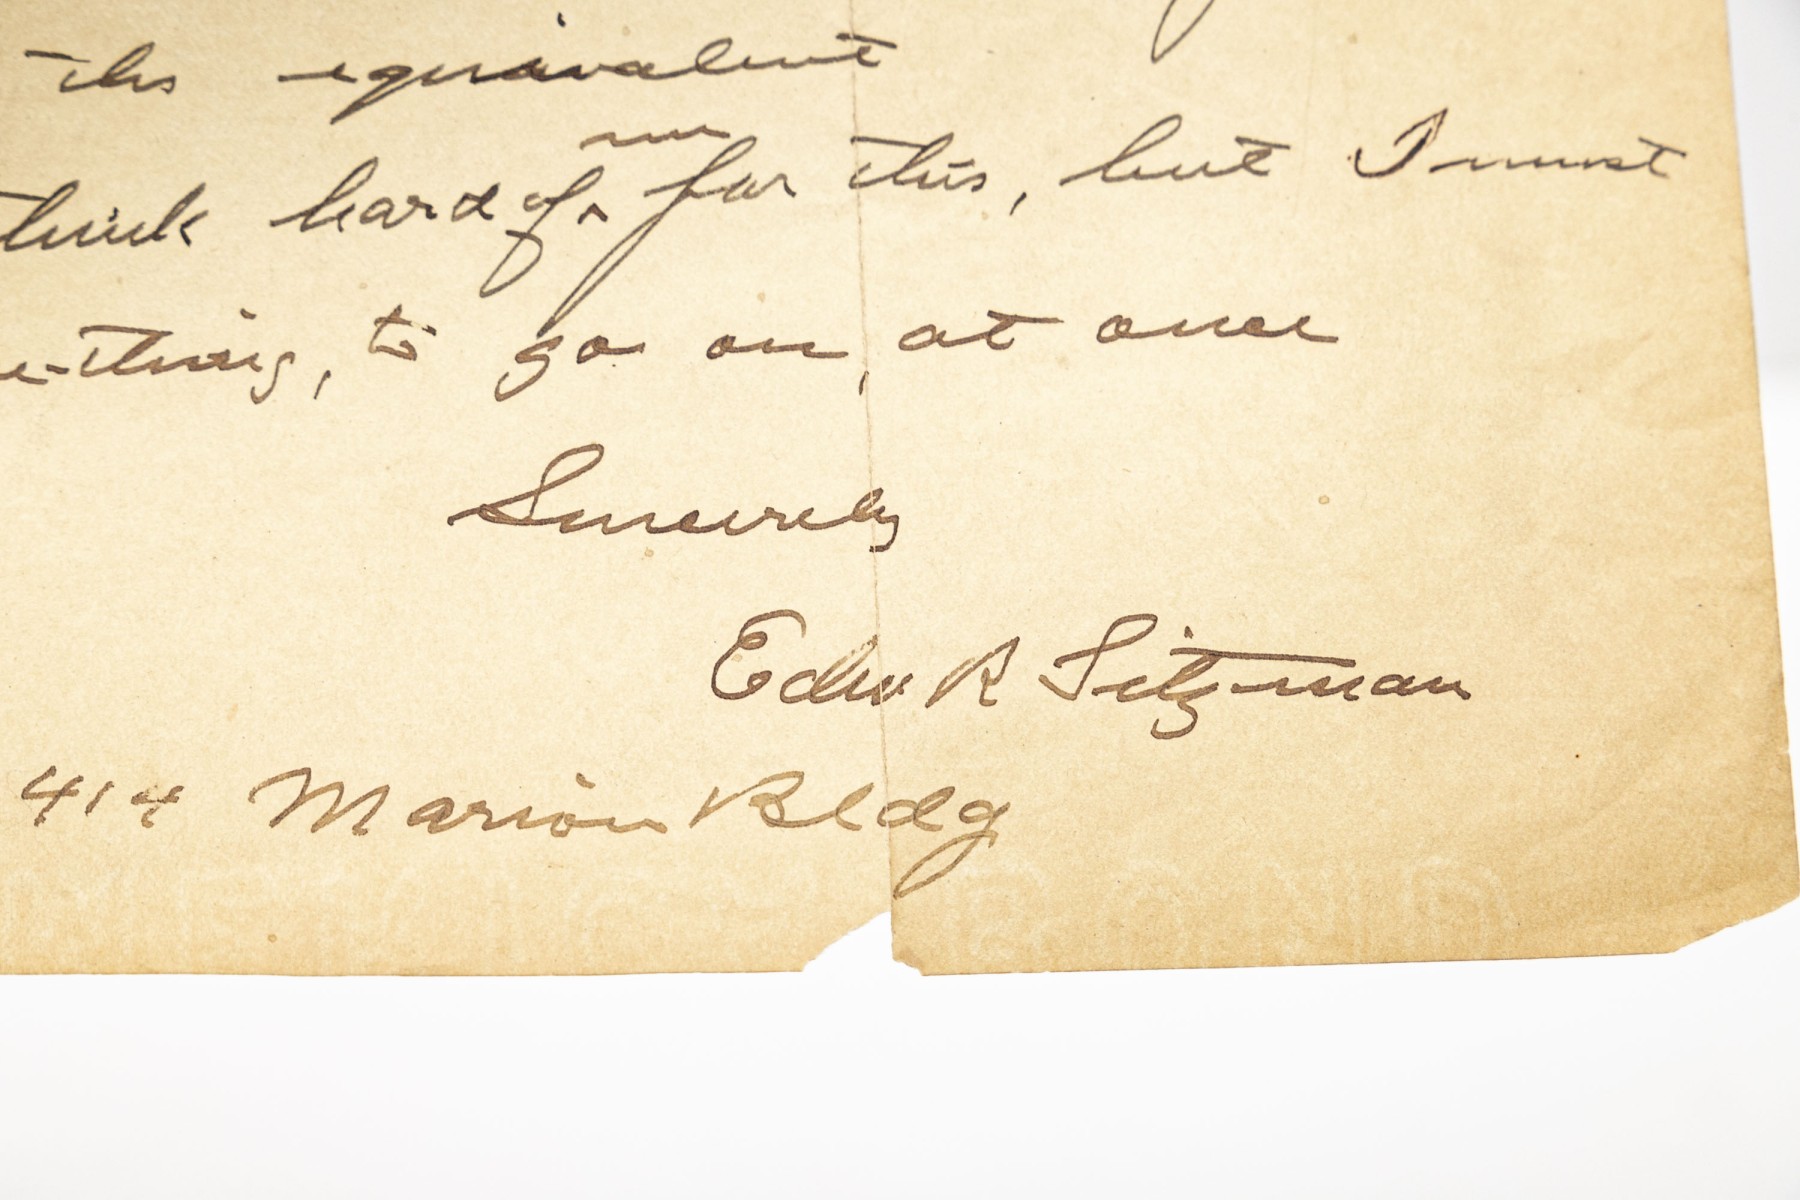 the equivalent
think hard of me for this, but I must
e-thing, to go on, at once
Sincerely
Edw R Sitzman
414 Marion Bldg